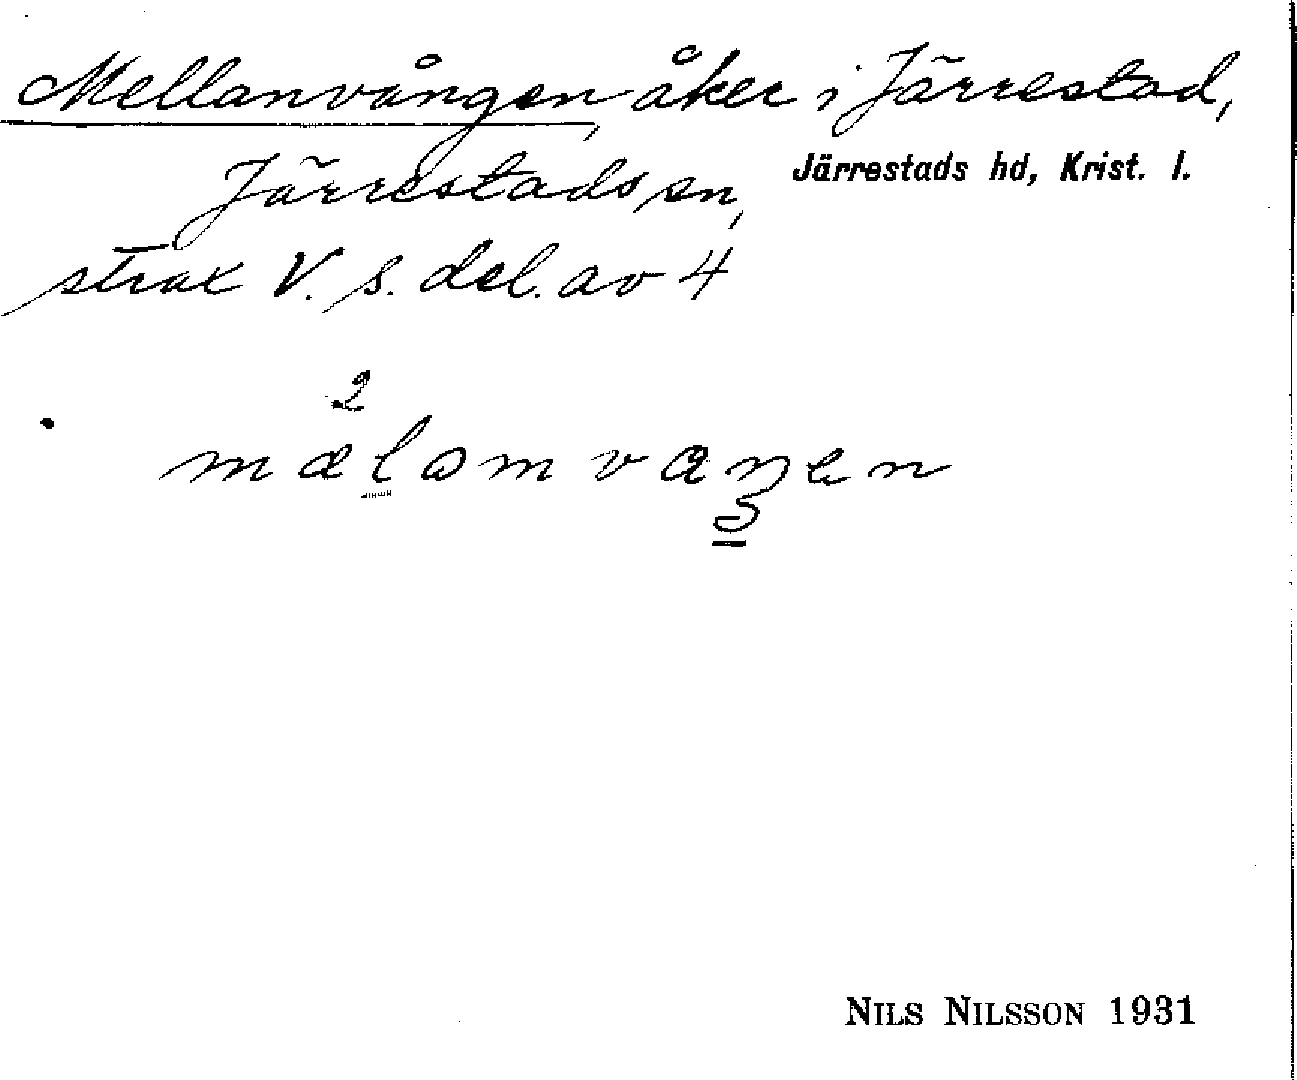 Mellanvången, åker i Järrestad,
Järrestads sn, Järrestads hd, Krist. l.
strax V. s. del. av 4
2
mælamvaŋen
NILS NILSSON 1931